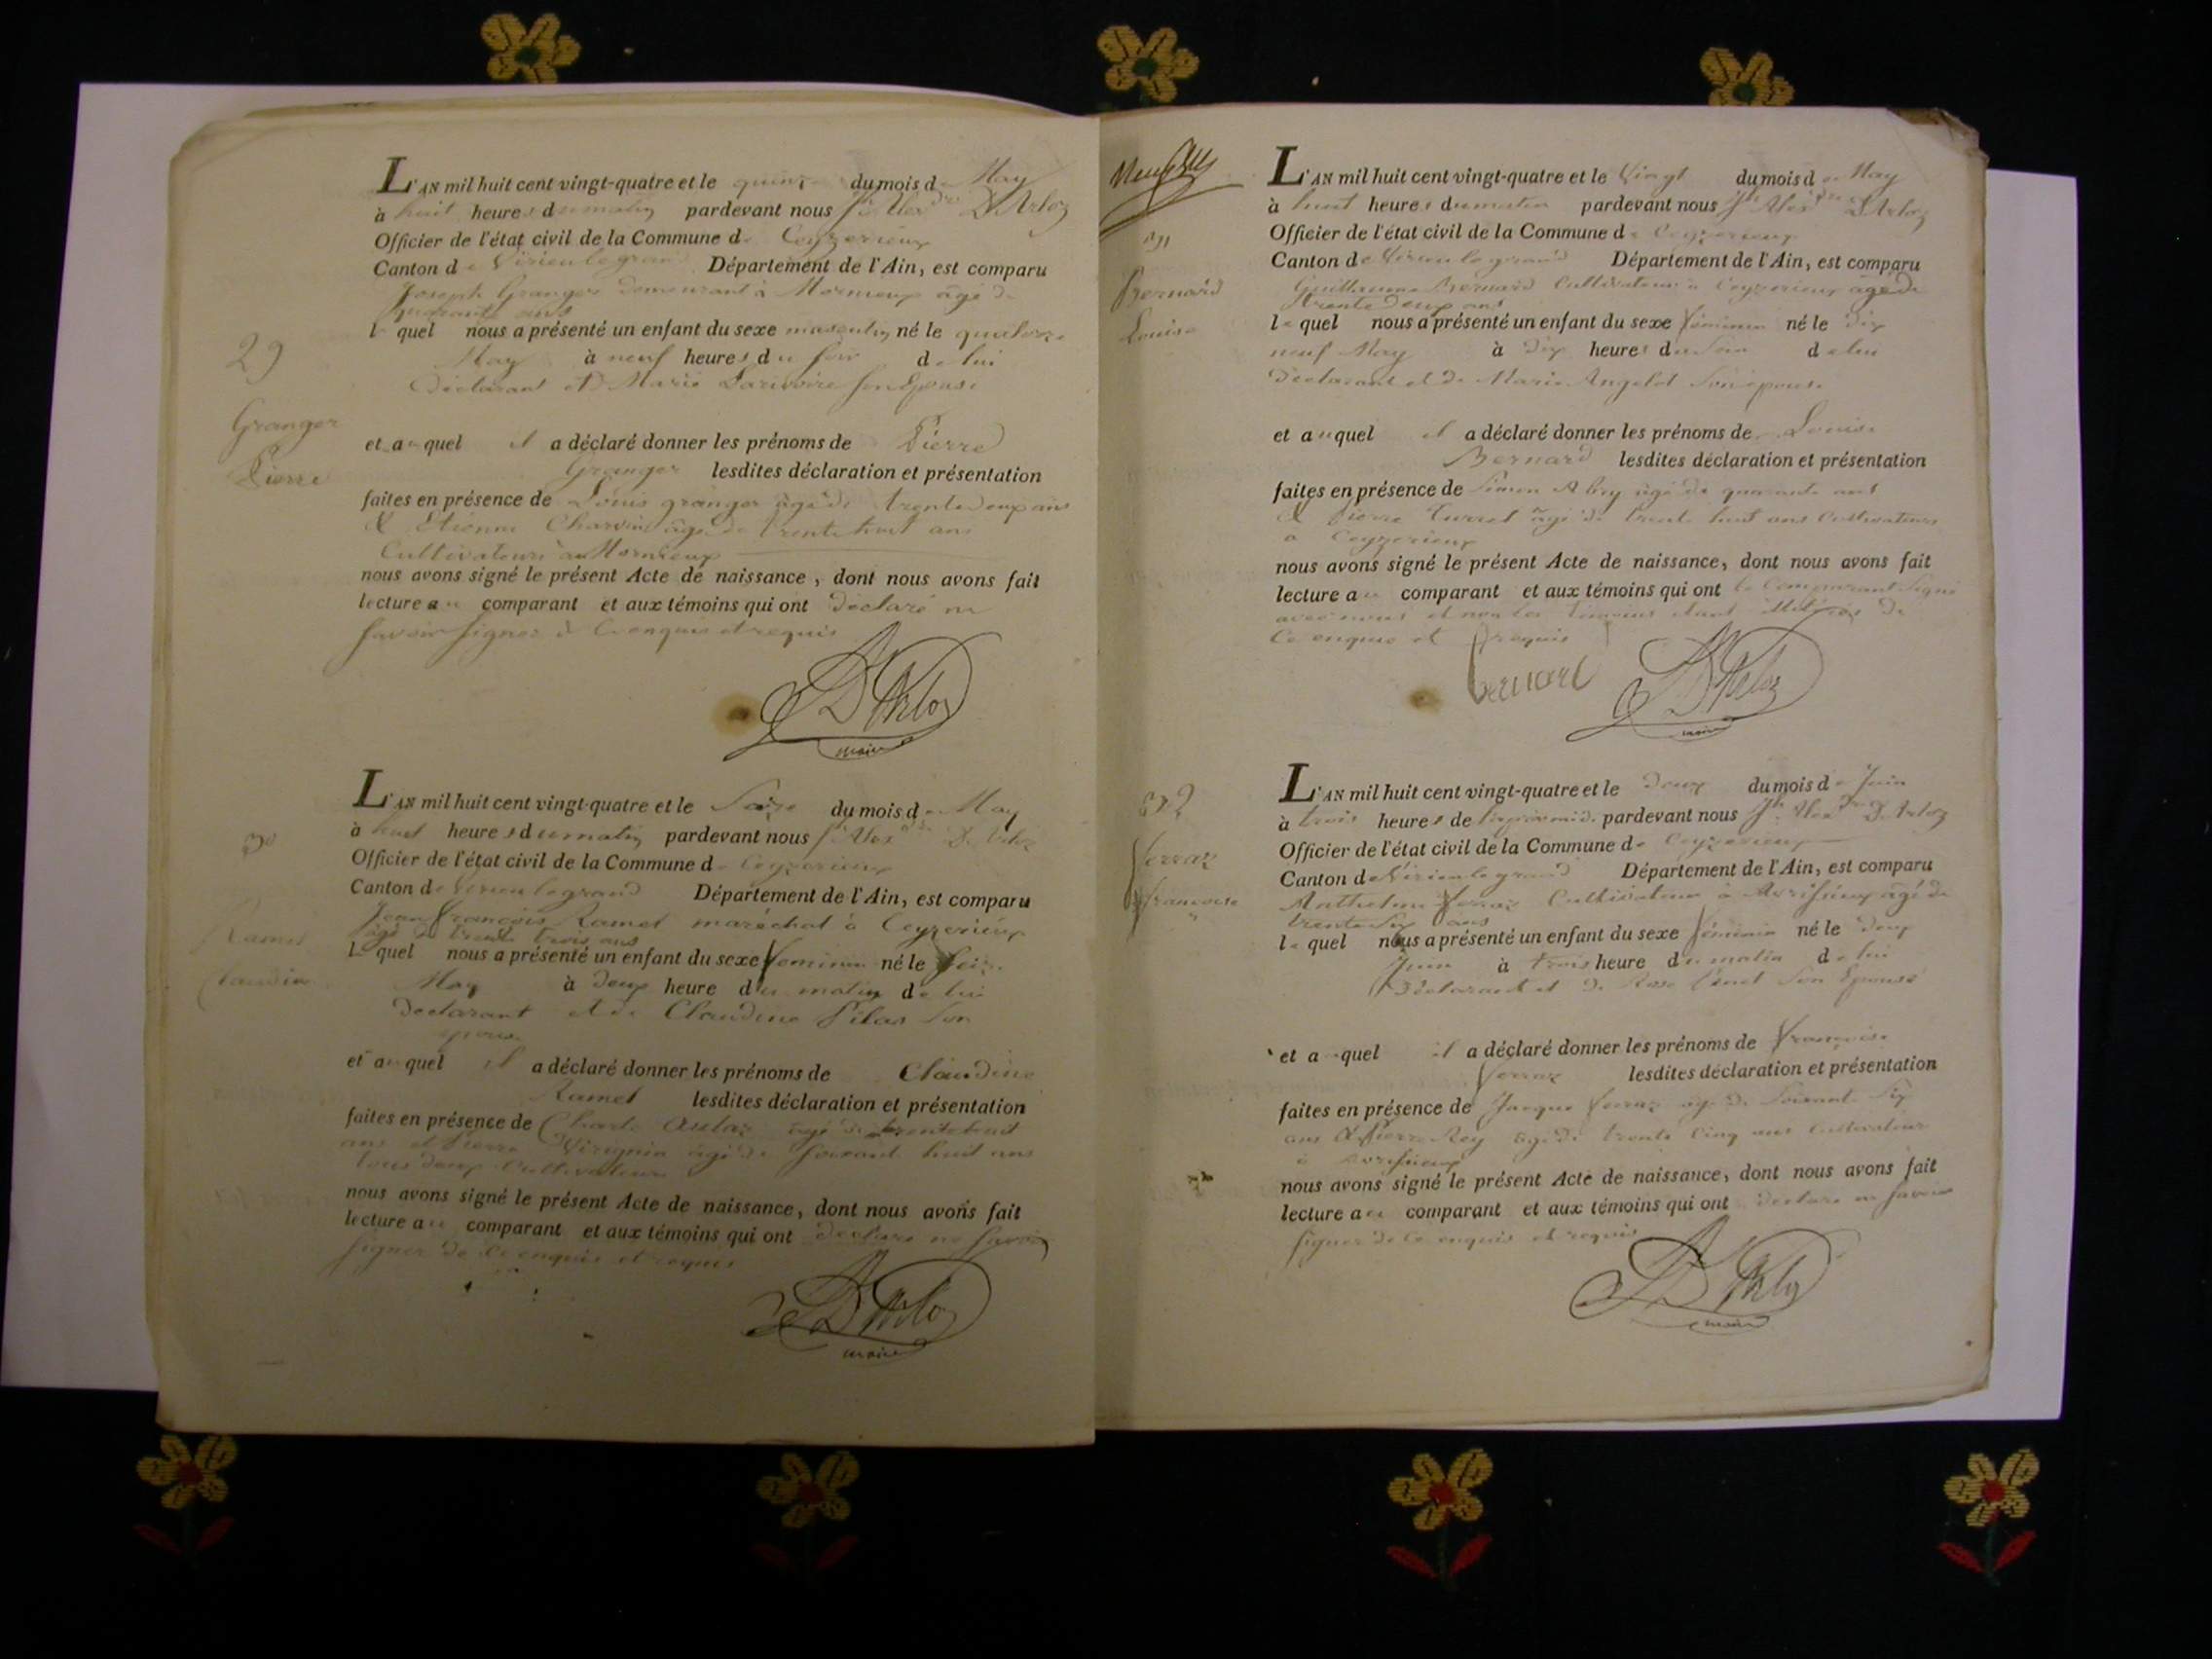 29
Granger
Pierre
L'AN mil huit cent vingt-quatre et le quinze du mois de May
à huit heures du matin pardevant nous Jh Alexdre D'Arloz
Officier de l'état civil de la Commune de Ceyzerieux
Canton de Virieu le grand Département de l'Ain, est comparu
Joseph Granger demeurant à âgé de
quarante ans
lequel nous a présenté un enfant du sexe masculin né le quatorze
May à neuf heures du soir de lui
Déclarant et Marie Darivoire son Epouse
et auquel il a déclaré donner les prénoms de Pierre
Granger lesdites déclaration et présentation
faites en présence de Louis granger âgé de trente deux ans
& Etienne Charvin âgé de trente huit ans
Cultivateurs
nous avons signé le présent Acte de naissance, dont nous avons fait
lecture au comparant et aux témoins qui ont declaré ne
savoir signer de ce enquis et requis
D'Arloz
maire
30
Ramel
Claudine
L'AN mil huit cent vingt-quatre et le Seize du mois de May
à huit heures du matin pardevant nous Jh Alexdre D'Arloz
Officier de l'état civil de la Commune de Ceyzerieux
Canton de Virieu le grand Département de l'Ain, est comparu
Jean François Ramel maréchal à Ceyzerieux
âgé de trente trois ans
lequel nous a présenté un enfant du sexe feminin né le seize
May à deux heure du matin de lui
Declarant et de Claudine Pilas Son
epouse
et auquel il a déclaré donner les prénoms de Claudine
Ramel lesdites déclaration et présentation
faites en présence de Charle âgé de trente huit
ans et Pierre âgé de soixant huit ans
tous deux Cultivateurs
nous avons signé le présent Acte de naissance, dont nous avons fait
lecture au comparant et aux témoins qui ont declare ne savoir
signer de ce enquis et requis
D'Arloz
maire
31
Bernard
Louise
L'AN mil huit cent vingt-quatre et le Vingt du mois de May
à huit heures du matin pardevant nous Jh Alexdre D'Arloz
Officier de l'état civil de la Commune de Ceyzerieux
Canton de Virieu le grand Département de l'Ain, est comparu
Guillaume Bernard Cultivateur à Ceyzerieux âgé de
trente deux ans
lequel nous a présenté un enfant du sexe féminin né le dix
neuf May à dix heures du soir de lui
Déclarant et de Marie Angelot Son epouse
et auquel il a déclaré donner les prénoms de Louise
Bernard lesdites déclaration et présentation
faites en présence de Simon Abry âgé de quarante ans
& Pierre Curret âgé de trente huit ans Cultivateurs
a Ceyzerieux
nous avons signé le présent Acte de naissance, dont nous avons fait
lecture au comparant et aux témoins qui ont le Comparant Signé
avec nous et non les témoins etant de
Ce enquis et requis
bernard
D'Arloz
maire
32
Verraz
françoise
L'AN mil huit cent vingt-quatre et le Deux du mois de Juin
à trois heures de l'aprèsmidi pardevant nous Jh Alexdre D'Arloz
Officier de l'état civil de la Commune de Ceyzerieux
Canton de Virieu le grand Département de l'Ain, est comparu
Anthelme Verraz Cultivateur à Avrissieux âgé de
trente Six ans
lequel nous a présenté un enfant du sexe féminin né le deux
Juin à trois heure du matin de lui
Déclarant et de Rose Son Epouse
et auquel il a déclaré donner les prénoms de Françoise
Verraz lesdites déclaration et présentation
faites en présence de Jacque Verraz agé de Soixante Six
ans & Pierre Rey âgé de trente Cinq ans Cultivateur
à avrissieux
nous avons signé le présent Acte de naissance, dont nous avons fait
lecture au comparant et aux témoins qui ont declare ne savoir
signer de Ce enquis et requis
D'Arloz
maire